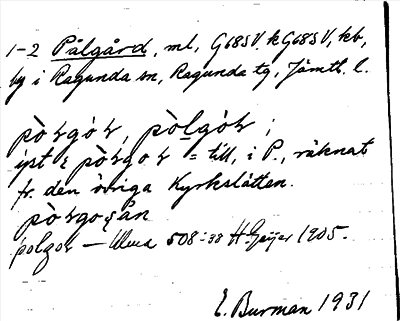 1-2 Pålgård, ml, G68SV, k G68SV, kb,
by i Ragunda sn, Ragunda tg, Jämtl. l.
pòrgór, pòlgór;
i pòrgor = till, i P., räknat
fr. den övriga Kyrkslätten.
pòrgo
polgor — Ulma 508:38 H. Geijer 1905.
E. Burman 1931